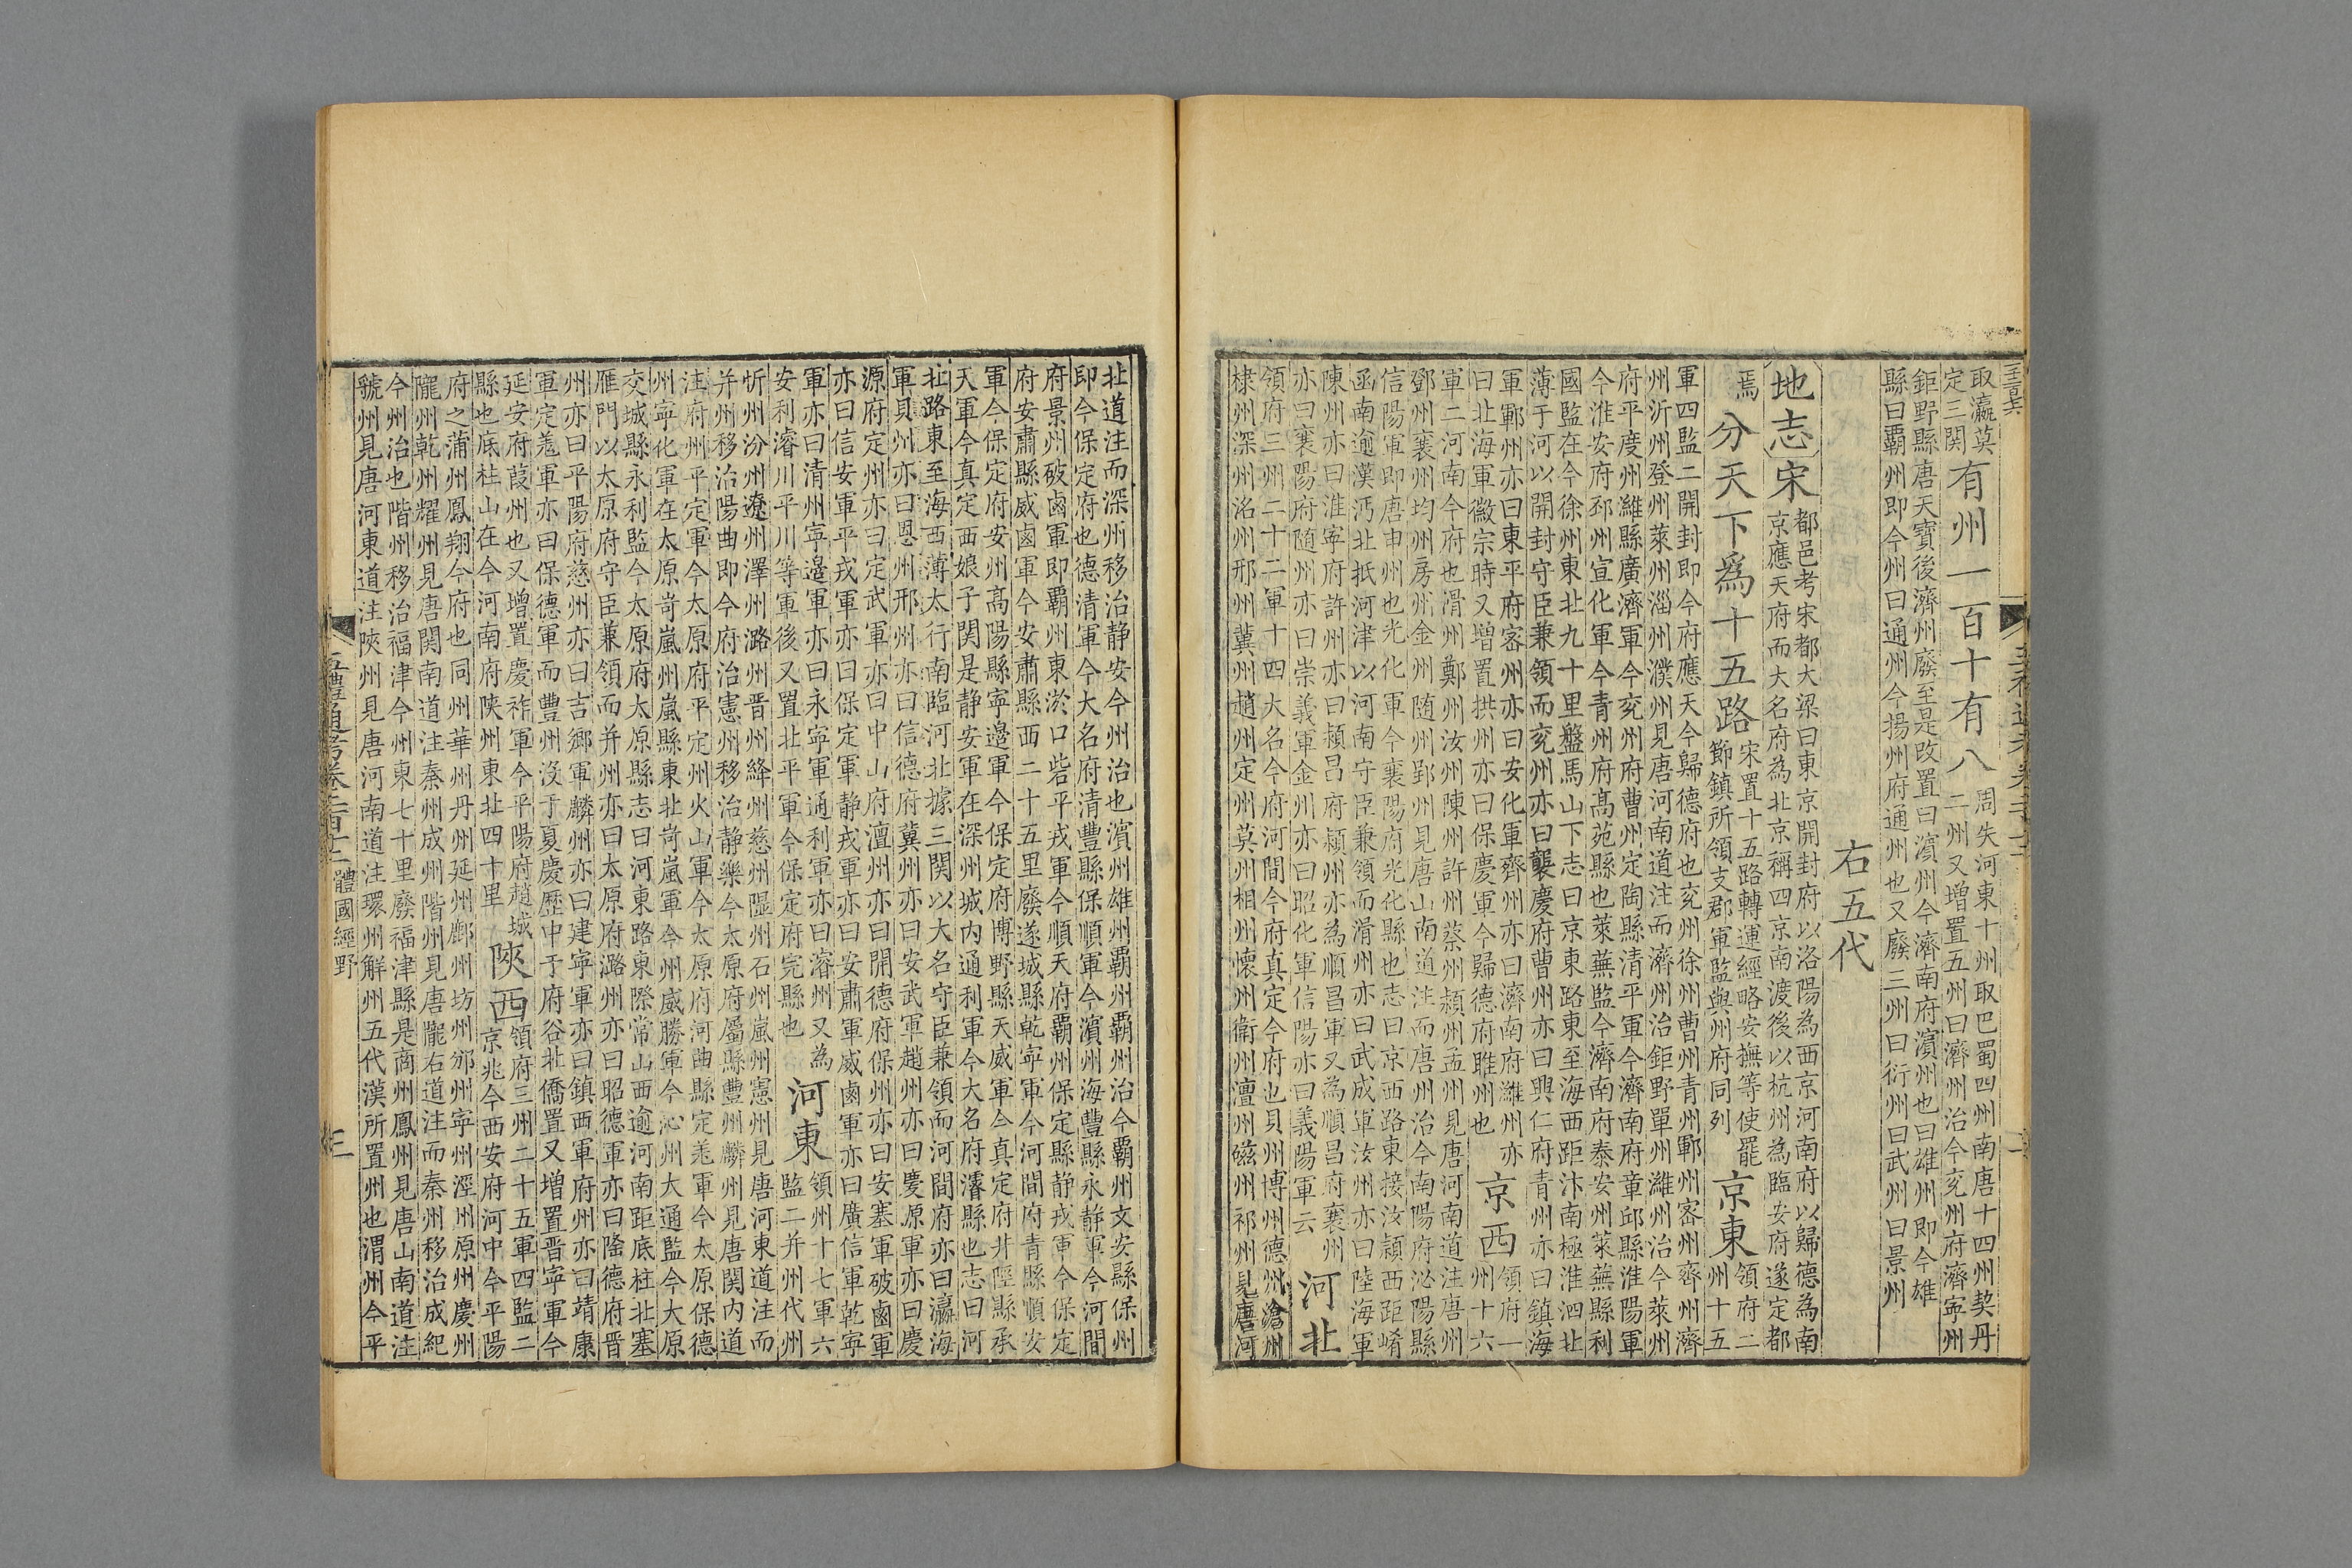 取瀛莫
定三関
有州一百十有八
周失河東十州取巴蜀四州南唐十四州契丹
二州又增置五州曰濟州治今兖州府濟寧州
鉅野縣唐天寶後濟州廢至是改置曰濱州今濟南府濱州也曰雄州即今雄
縣曰覇州即今州曰通州今揚州府通州也又廢三州曰衍州曰武州曰景州
右五代
地志
宋
都邑考宋都大梁曰東京開封府以洛陽為西京河南府以歸德為南
京應天府而大名府為北京稱四京南渡後以杭州為臨安府遂定都
焉
分天下爲十五路
宋置十五路轉運經略安撫等使罷
節鎮所領支郡軍監與州府同列
京東
領府二
州十五
軍四監二開封即今府應天今歸德府也兖州徐州曹州青州鄆州密州齊州濟
州沂州登州萊州淄州濮州見唐河南道注而濟州治鉅野單州濰州治今萊州
府平度州濰縣廣濟軍今兖州府曹州定陶縣清平軍今濟南府章邱縣淮陽軍
今淮安府邳州宣化軍今青州府高苑縣也萊蕪監今濟南府泰安州萊蕪縣利
國監在今徐州東北九十里盤馬山下志曰京東路東至海西距汴南極淮泗北
薄于河以開封守臣兼領而兖州亦曰襲慶府曹州亦曰興仁府青州亦曰鎮海
軍鄆州亦曰東平府密州亦曰安化軍齊州亦曰濟南府濰州亦
曰北海軍徽宗時又增置拱州亦曰保慶軍今歸德府睢州也
京西
領府一
州十六
軍二河南今府也滑州鄭州汝州陳州許州蔡州潁州孟州見唐河南道注唐州
鄧州襄州均州房州金州随州郢州見唐山南道注而唐州治今南陽府泌陽縣
信陽軍即唐申州也光化軍今襄陽府光化縣也志曰京西路東接汝潁西距崤
函南逾漢沔北抵河津以河南守臣兼領而滑州亦曰武成軍汝州亦曰陸海軍
陳州亦曰淮寧府許州亦曰潁昌府潁州亦為順昌軍又為順昌府襄州
亦曰襄陽府随州亦曰崇義軍金州亦曰昭化軍信陽亦曰義陽軍云
河北
領府三州二十二軍十四大名今府河間今府真定今府也貝州博州德州滄州
棣州深州洺州邢州冀州趙州定州莫州相州懷州衛州澶州磁州祁州見唐河
北道注而深州移治静安今州治也濱州雄州覇州覇州治今覇州文安縣保州
即今保定府也德清軍今大名府清豐縣保順軍今濱州海豐縣永静軍今河間
府景州破鹵軍即覇州東淤口砦平戎軍今順天府覇州保定縣静戎軍今保定
府安肅縣威鹵軍今安肅縣西二十五里廢遂城縣乾寧軍今河間府青縣順安
軍今保定府安州高陽縣寧邊軍今保定府博野縣天威軍今真定府井陘縣承
天軍今真定西娘子関是静安軍在深州城内通利軍今大名府濬縣也志曰河
北路東至海西薄太行南臨河北據三関以大名守臣兼領而河間府亦曰瀛海
軍貝州亦曰恩州邢州亦曰信德府冀州亦曰安武軍趙州亦曰慶原軍亦曰慶
源府定州亦曰定武軍亦曰中山府澶州亦曰開德府保州亦曰安塞軍破鹵軍
亦曰信安軍平戎軍亦曰保定軍静戎軍亦曰安肅軍威鹵軍亦曰廣信軍乾寧
軍亦曰清州寧邊軍亦曰永寧軍通利軍亦曰濬州又為
安利濬川平川等軍後又置北平軍今保定府完縣也
河東
領州十七軍六
監二并州代州
忻州汾州遼州澤州潞州晋州絳州慈州隰州石州嵐州憲州見唐河東道注而
并州移治陽曲即今府治憲州移治静樂今太原府屬縣豐州麟州見唐関内道
注府州平定軍今太原府平定州火山軍今太原府河曲縣定羌軍今太原保德
州寧化軍在太原岢嵐州嵐縣東北岢嵐軍今州威勝軍今沁州大通監今太原
交城縣永利監今太原府太原縣志曰河東路東際常山西逾河南距底柱北塞
雁門以太原府守臣兼領而并州亦曰太原府潞州亦曰昭德軍亦曰隆德府晋
州亦曰平陽府慈州亦曰吉鄉軍麟州亦曰建寧軍亦曰鎮西軍府州亦曰靖康
軍定羌軍亦曰保德軍而豐州沒于夏慶歷中于府谷北僑置又增置晋寧軍今
延安府葭州也又增置慶祚軍今平陽府趙城
縣也底柱山在今河南府陜州東北四十里
陜西
領府三州二十五軍四監二
京兆今西安府河中今平陽
府之蒲州鳳翔今府也同州華州丹州延州鄜州坊州邠州寧州涇州原州慶州
隴州乾州耀州見唐関南道注秦州成州階州見唐隴右道注而秦州移治成紀
今州治也階州移治福津今州東七十里廢福津縣是商州鳳州見唐山南道注
虢州見唐河東道注陜州見唐河南道注環州解州五代漢所置州也渭州今平
五禮通考卷二百十二
體國經野
三